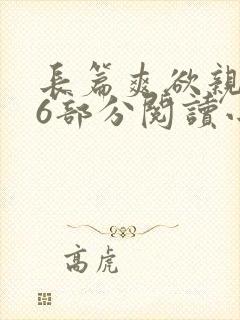 長篇爽欲親
6部分閱讀小
高虎